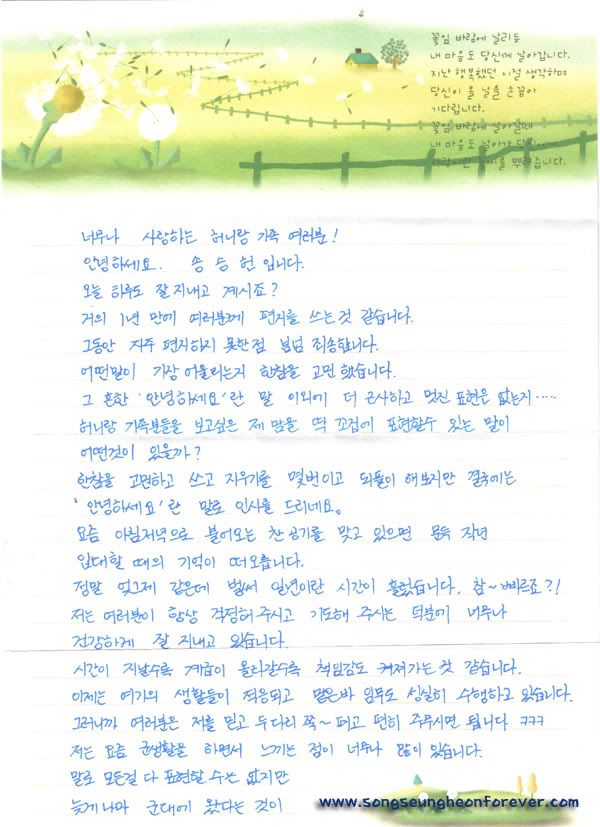 꽃잎 바람에 날리듯
내 마음도 당신께 날아갑니다.
지난 행복했던 시절 생각하며
당신이 올 날을 손꼽아
기다립니다.
꽃잎 바람에 날아갈때
내 마음도 날아가 당신에게
사랑이란 씨를 뿌려줍니다.
너무나 사랑하는 허니랑 가족 여러분!
안녕하세요. 송승헌 입니다.
오늘 하루도 잘 지내고 계시죠?
거의 1년 만에 여러분께 편지를 쓰는것 같습니다.
그동안 자주 편지하지 못한점 죄송합니다.
어떤말이 가장 어울리는지 한참을 고민했습니다.
그 흔한 '안녕하세요'란 말 이외에 더 근사하고 멋진 표현은 없는지.....
허니랑 가족분들을 보고싶은 제 맘을 딱 꼬집어 표현할수 있는 말이
어떤것이 있을까?
한참을 고민하고 쓰고 지우기를 몇번이고 되풀이 해보지만 결국에는
'안녕하세요'란 말로 인사를 드리네요.
요즘 아침저녁으로 불어오는 찬공기를 맞고 있으면 문득 작년
입대할 때의 기억이 떠오릅니다.
정말 엊그제 같은데 벌써 일년이란 시간이 흘렀습니다. 참~ 빠르죠?!
저는 여러분이 항상 걱정해주시고 기도해 주시는 덕분에 너무나
건강하게 잘 지내고 있습니다.
시간이 지날수록 계급이 올라갈수록 책임감도 커져가는 것 같습니다.
이제는 여기의 생활들이 적응되고 맡은바 임무도 성실히 수행하고 있습니다.
그러니까 여러분은 저를 믿고 두다리 쭉~ 펴고 편히 주무시면 됩니다 ㅋㅋㅋ
저는 요즘 군생활을 하면서 느끼는 점이 너무나 많이 있습니다.
말로 모든걸 다 표현할 수는 없지만
늦게나마 군대에 왔다는 것이
www.songseungheonforever.com